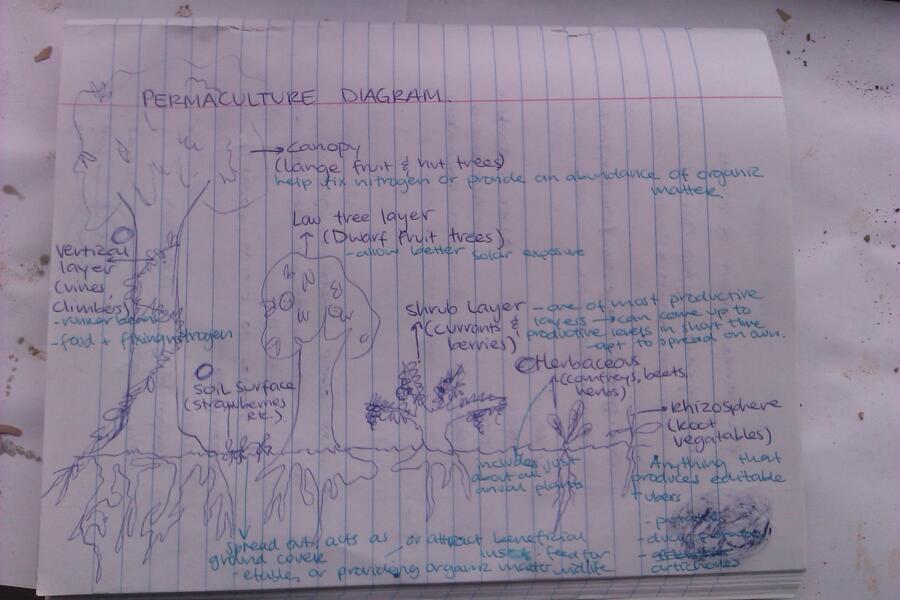 PERMACULTURE DIAGRAM.
canopy
(Large fruit & nut trees)
help fix nitrogen or provide an abundance of organic
matter.
Low tree layer
(Dwarf fruit trees)
- allow better solar exposure
vertical
layer
(vines,
climbers)
- runner beans
- food + fixing nitrogen
shrub layer
(currants &
berries)
- one of most productive
layers → can come up to
productive levels in short time
- apt to spread on own.
Herbaceous
(comfreys, beets,
herbs)
Soil surface
(strawberries
etc.)
Rhizosphere
(Root
vegatables)
includes just
about all
annual plants
Anything that
produces editable
tubers
- artichokes
Spread out, acts as / or attract beneficial
ground cover
- etable, or providing organic matter
feed for